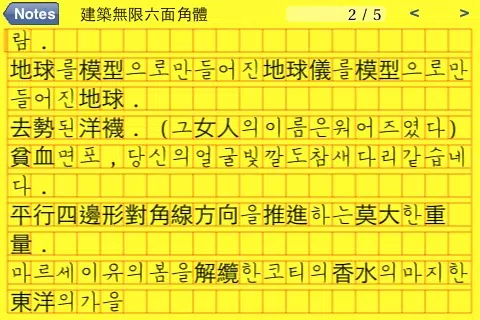 Notes 建築無限六面角體 2 / 5 < >
람 .
地球를模型으로만들어진地球儀를模型으로만
들어진地球 .
去勢된洋襪 . (그女人의이름은워어즈였다)
貧血면포 , 당신의얼굴빛깔도참새다리같습네
다 .
平行四邊形對角線方向을推進하는莫大한重
量 .
마르세이유의봄을解纜한코티의香水의마지한
東洋의가을